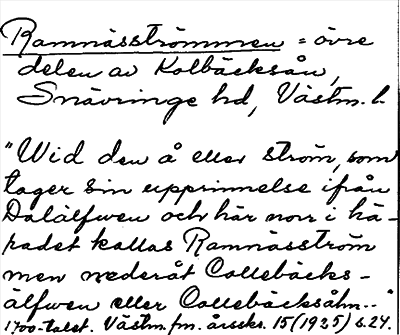 Ramnäsströmmen = övre
delen av Kolbäcksån,
Snävringe hd, Västm. l.
"Wid den å eller ström, som
tager sin upprinnelse ifrån
Dalälfwen och här norr i hä-
radet kallas Ramnäsström
men nederåt Collebäcks-
älfwen eller Collebäcksåhn..."
1700-talet. Västm. fm. årsskr. 15 (1925) s. 24.